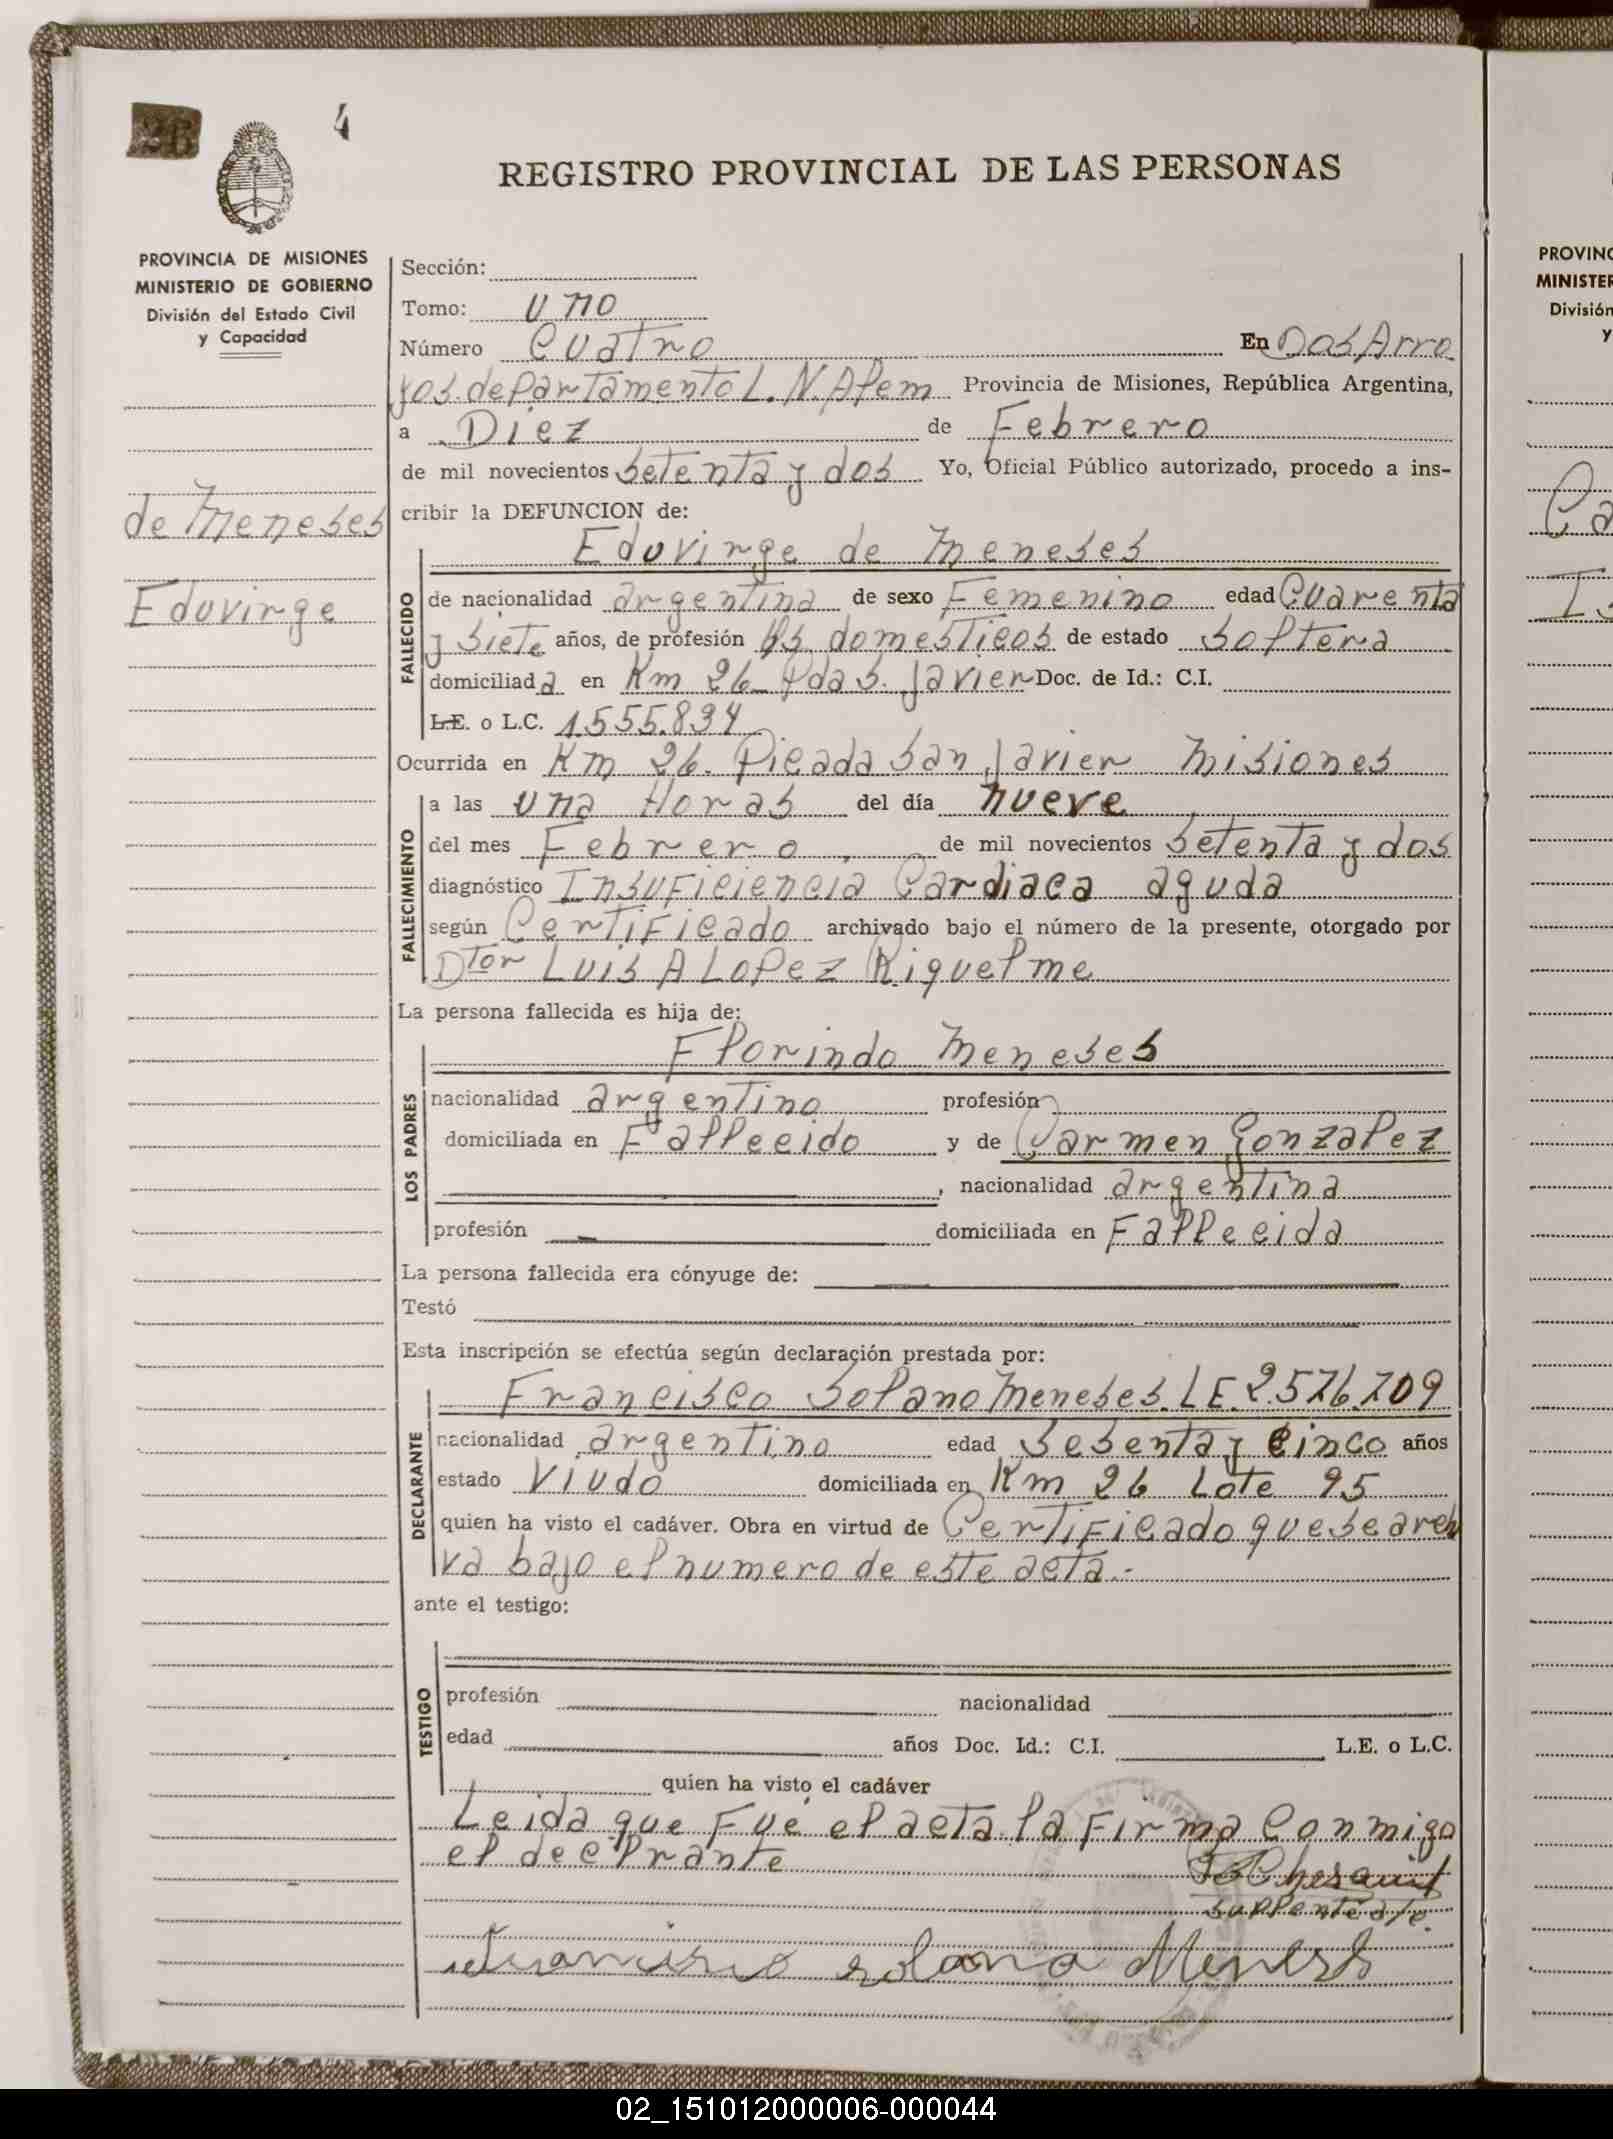 26
4
REGISTRO PROVINCIAL DE LAS PERSONAS
PROVINCIA DE MISIONES
MINISTERIO DE GOBIERNO
División del Estado Civil
y Capacidad
de Meneses
Eduvirge
Sección:
Tomo: uno
Número Cuatro En Dos Arro
yos departamento L. N. Alem Provincia de Misiones, República Argentina,
a Diez de Febrero
de mil novecientos setenta y dos Yo, Oficial Público autorizado, procedo a ins-
cribir la DEFUNCION de:
Eduvirge de Meneses
FALLECIDO
de nacionalidad argentina de sexo Femenino edad Cuarenta
y siete años, de profesión qs. domesticos de estado soltera
domiciliada en Km 26 Pda S. Javier Doc. de Id.: C.I.
L.E. o L.C. 1.555.834
Ocurrida en Km 26. Picada San Javier Misiones
FALLECIMIENTO
a las una Horas del día nueve
del mes Febrero de mil novecientos setenta y dos
diagnóstico Insuficiencia Cardiaca aguda
según Certificado archivado bajo el número de la presente, otorgado por
Dtor Luis A Lopez Riquelme
La persona fallecida es hija de:
Florindo Meneses
LOS PADRES
nacionalidad argentino profesión
domiciliada en Fallecido y de Carmen Gonzalez
, nacionalidad argentina
profesión domiciliada en Fallecida
La persona fallecida era cónyuge de:
Testó
Esta inscripción se efectúa según declaración prestada por:
Francisco Solano Meneses. LE 2.576.709
DECLARANTE
nacionalidad argentino edad sesenta y cinco años
estado Viudo domiciliada en Km 26 Lote 95
quien ha visto el cadáver. Obra en virtud de Certificado que se archi
va bajo el numero de este acta.-
ante el testigo:
TESTIGO
profesión nacionalidad
edad años Doc. Id.: C.I. L.E. o L.C.
quien ha visto el cadáver
Leida que Fué el acta la firma Conmigo
el declrante
Francisco solano Meneses
PROVINC
MINISTER
División
y
Ca
02_151012000006-000044